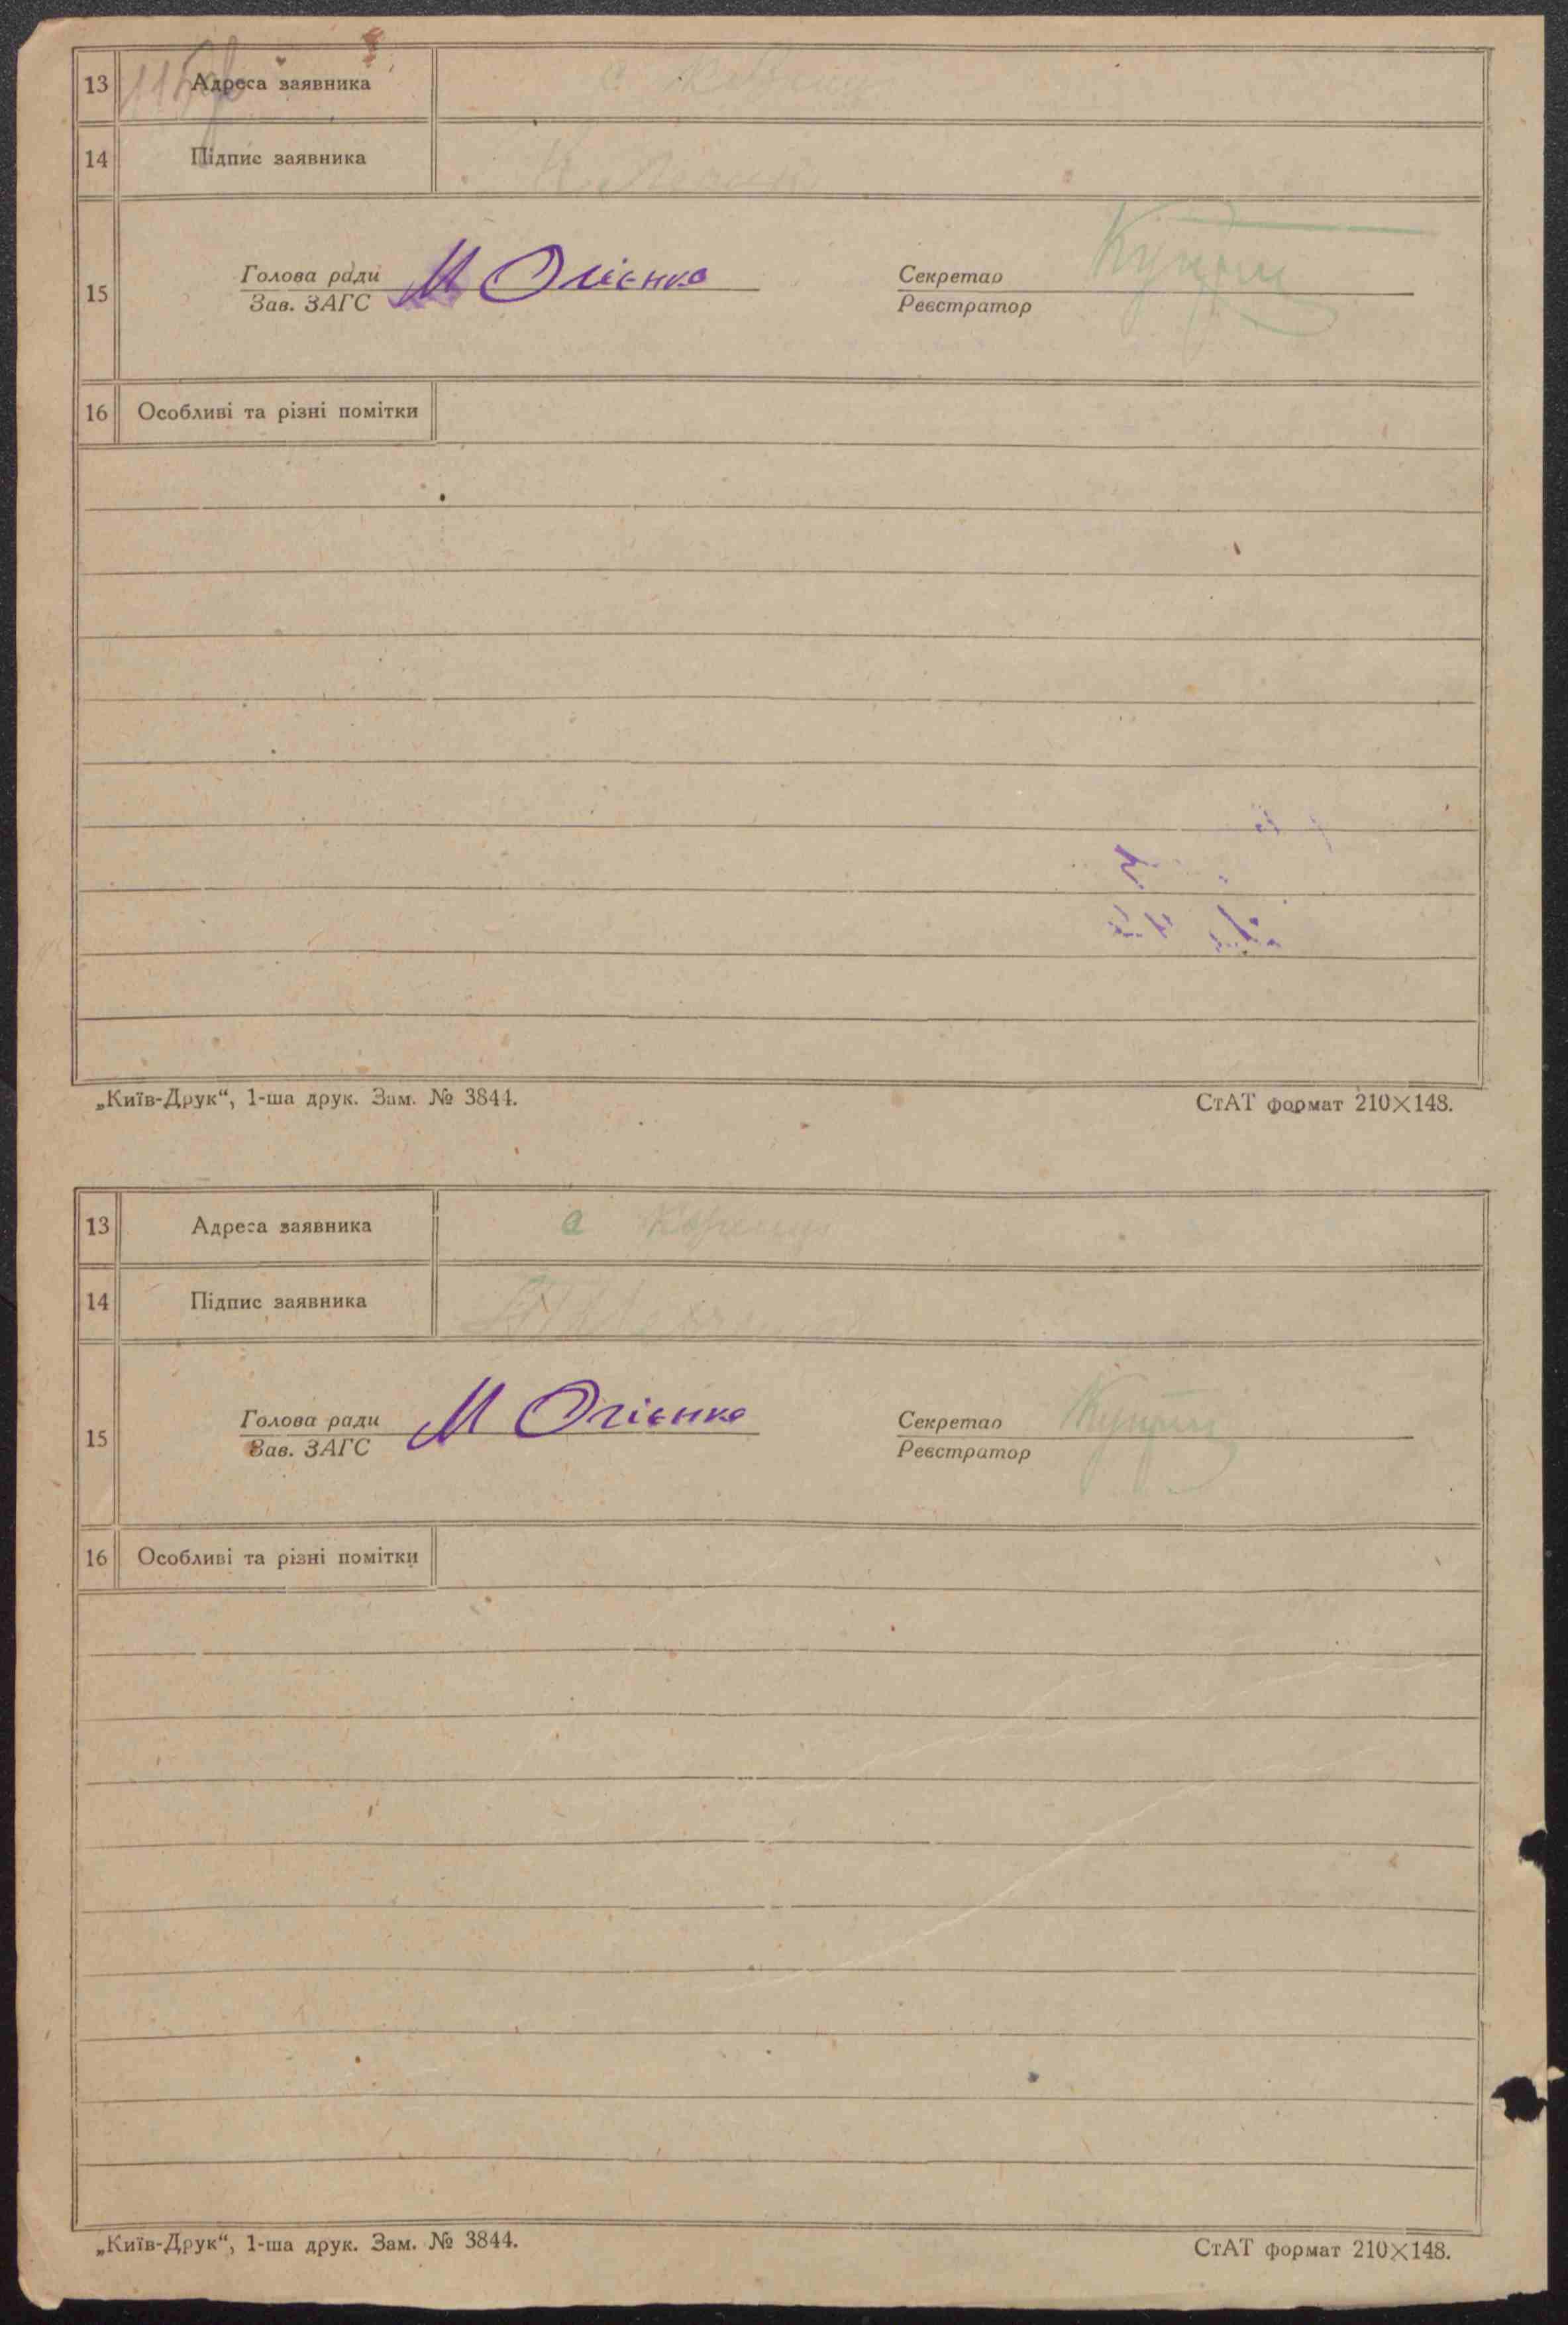 13 Адреса заявника с
14 Підпис заявника
15 Голова ради М Огієнко Секретар
Зав. ЗАГС Реєстратор
16 Особливі та різні помітки
„Київ-Друк“, 1-ша друк. Зам. № 3844. СтАТ формат 210×148.
13 Адреса заявника с
14 Підпис заявника
15 Голова ради М Огієнко Секретар
Зав. ЗАГС Реєстратор
16 Особливі та різні помітки
„Київ-Друк“, 1-ша друк. Зам. № 3844. СтАТ формат 210×148.